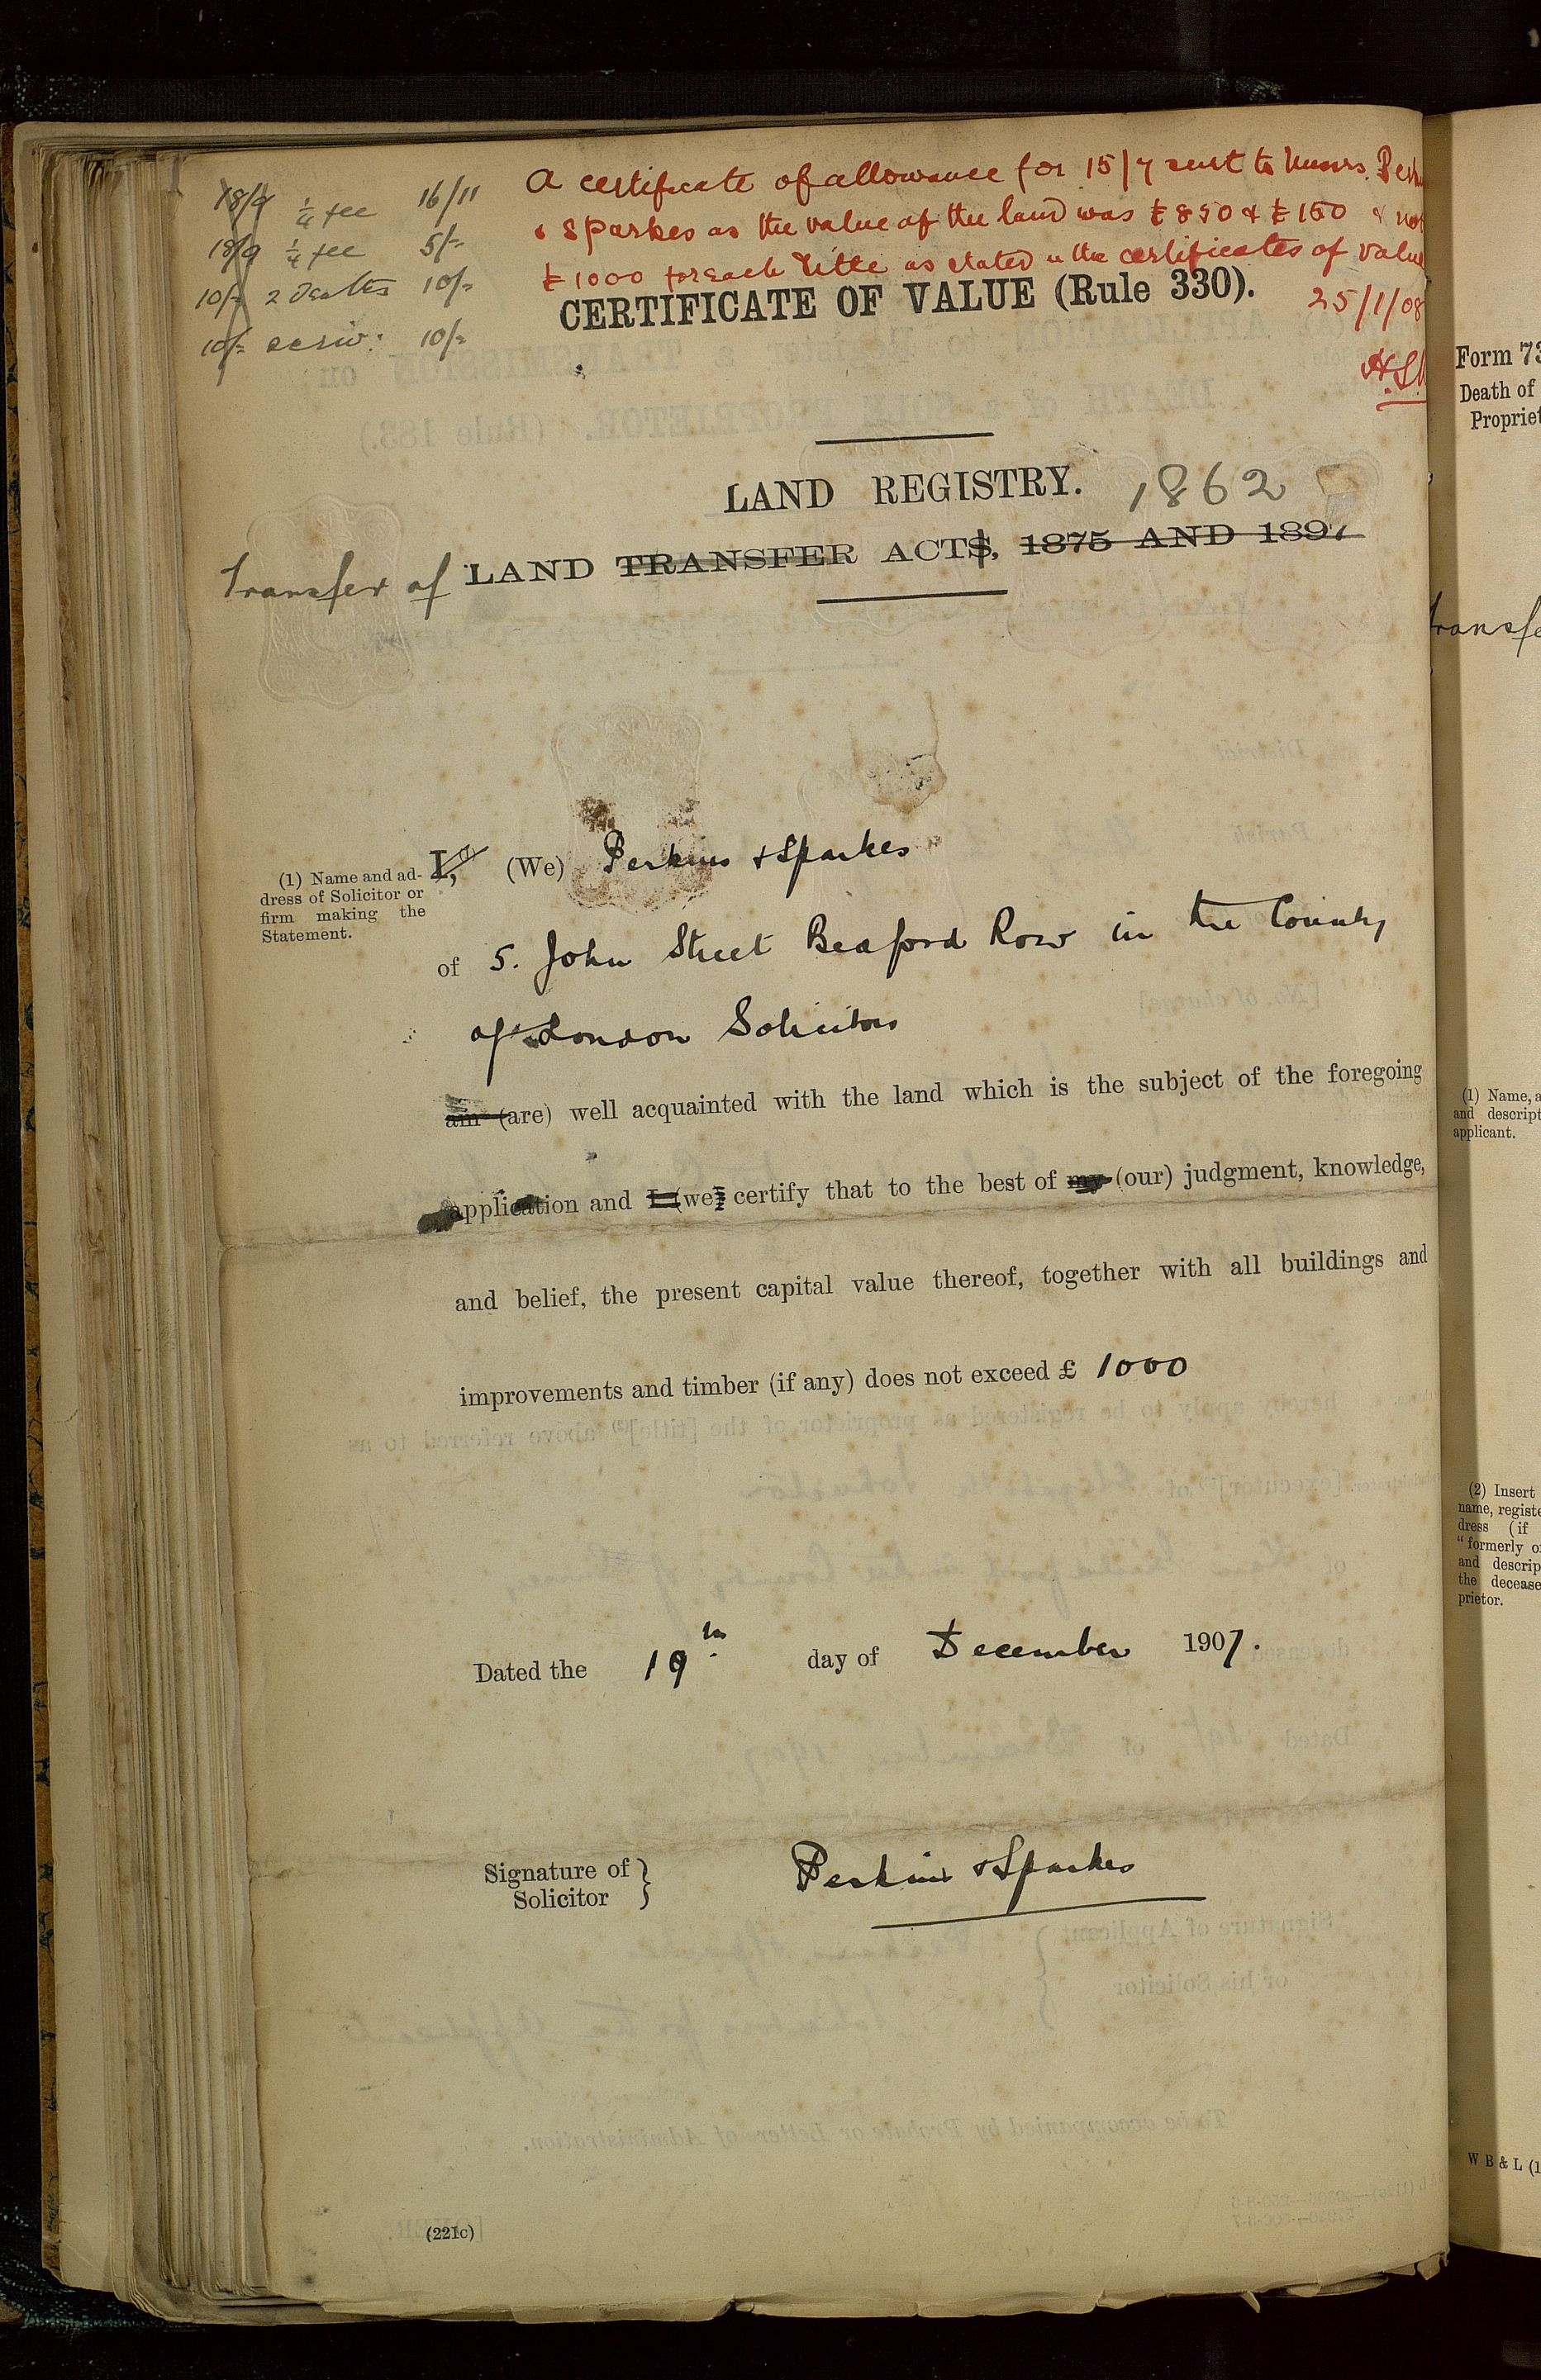 18/9 ¼ fee 16/11
18/9 ¼ fee 5/-
10/- 2 Deaths 10/-
10/- 10/-
A certificate of allowance for 15/7 sent to Messrs. Perk
& Sparkes as the value of the land was £850 & £150 & not
£1000 for each Title as stated in the certificates of value
25/1/08
CERTIFICATE OF VALUE (Rule 330).
LAND REGISTRY. 1862
Transfer of LAND TRANSFER ACTS, 1875 AND 1897
(1) Name and ad-
dress of Solicitor or
firm making the
Statement.
I,(1) (We) Perkins & Sparkes
of 5. John Street Bedford Row in the County
of London Solicitors
am (are) well acquainted with the land which is the subject of the foregoing
application and I (we) certify that to the best of my (our) judgment, knowledge,
and belief, the present capital value thereof, together with all buildings and
improvements and timber (if any) does not exceed £ 1000
Dated the 19th day of December 1907.
Signature of
Solicitor } Perkins & Sparkes
(221c)
Form 73
Death of
Propriet
transfe
(1) Name, a
and descript
applicant.
(2) Insert
name, registe
dress (if
"formerly o
and descrip
the decease
prietor.
W B & L (1